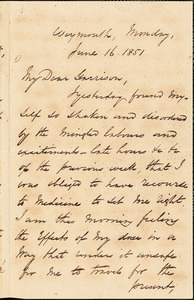 Weymouth, Monday,
June 16. 1851
My Dear Garrison,
Yesterday found my-
self so shaken and disordered
by the mingled labours and
excitement - late hours &c &c
of the previous week, that I
was obliged to have recourse
to Medicine to set me right.
I am this morning feeling
the effects of my dose in a
way that renders it unsafe
for me to travel for the
present,